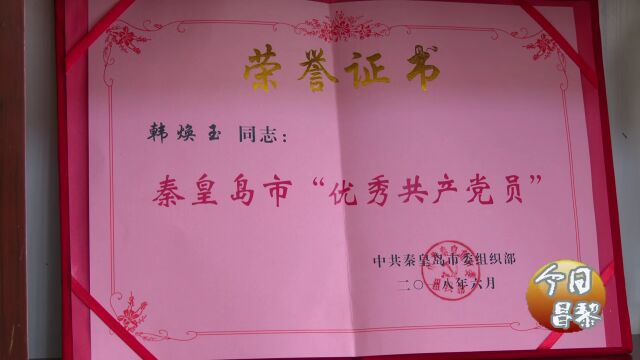 荣誉证书
韩焕玉 同志：
秦皇岛市“优秀共产党员”
中共秦皇岛市委组织部
二〇一八年六月
今日
昌黎